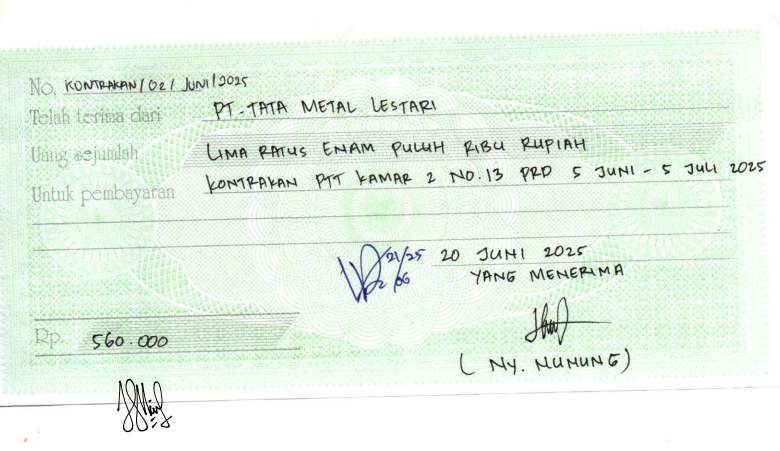 No. KONTRAKAN/02/JUNI/2025
Telah terima dari PT. TATA METAL LESTARI
Uang sejumlah LIMA RATUS ENAM PULUH RIBU RUPIAH
Untuk pembayaran KONTRAKAN PTT KAMAR 2 NO.13 PRD 5 JUNI - 5 JULI 2025
21/25 20 JUNI 2025
06 YANG MENERIMA
Rp. 560.000
( NY. NUNUNG )